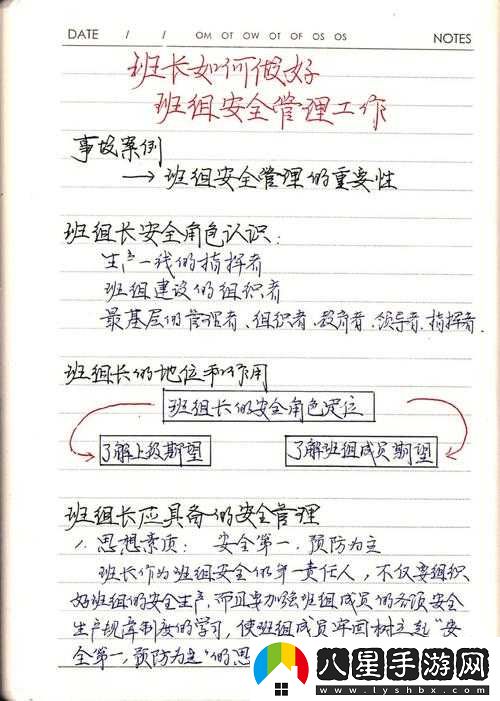 DATE / / OM OT OW OT OF OS OS NOTES
班长如何做好
班组安全管理工作
事故案例
→班组安全管理的重要性
班组长安全角色认识:
生产一线的指挥者
班组建设的组织者
最基层的管理者、组织者、教育者、领导者、指挥者.
班组长的地位和作用
班组长的安全角色定位
了解上级期望 了解班组成员期望
班组长应具备的安全管理
1. 思想素质: 安全第一、预防为主
班长作为班组安全的第一责任人,不仅要组织
好班组的安全生产,而且要加强班组成员的各项安全
生产规章制度的学习,使班组成员牢固树立起“安
全第一,预防为主”的思
八星手游网
www.lyshbx.com